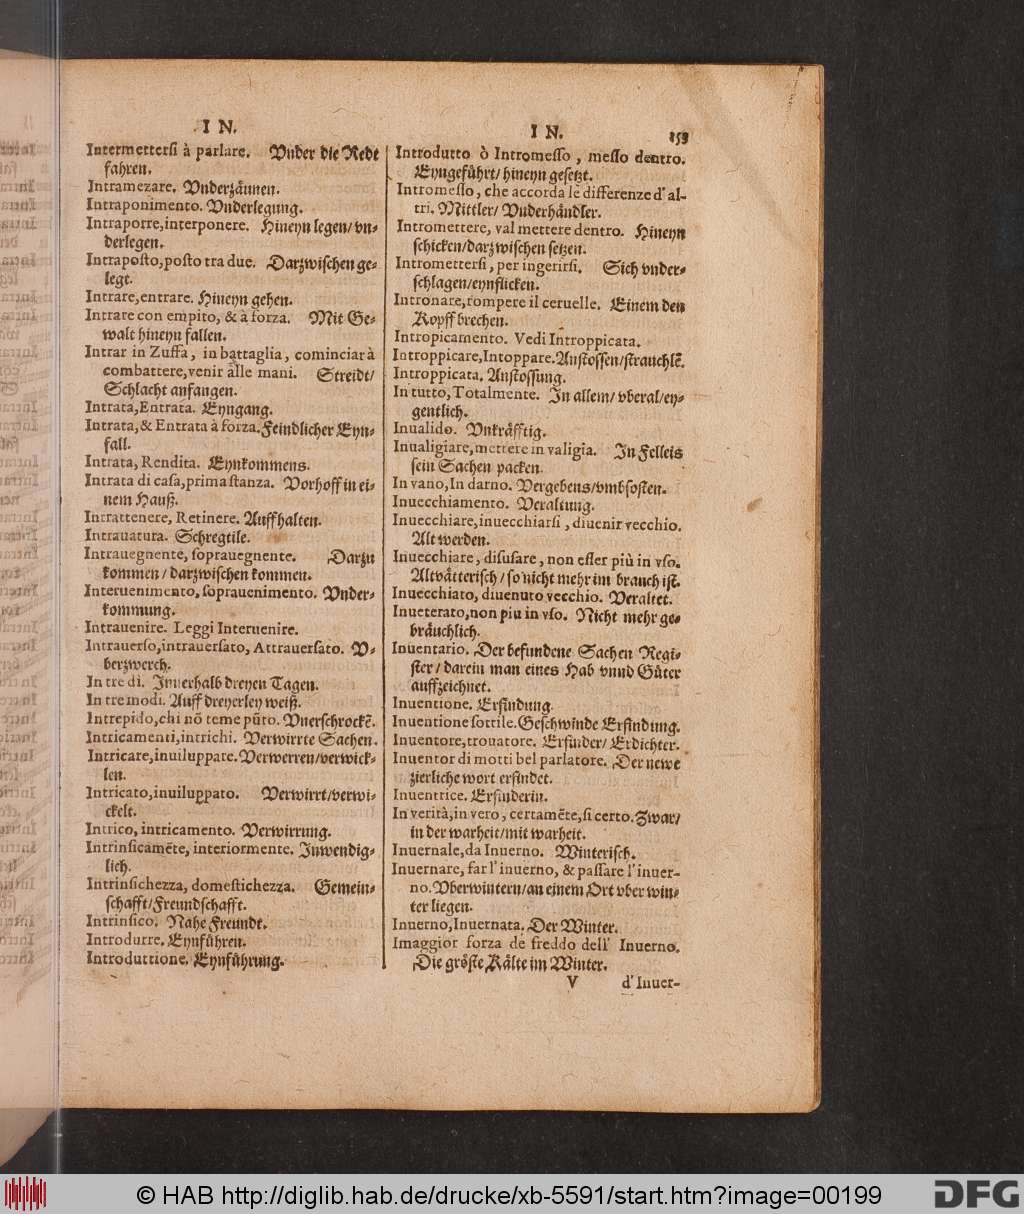 I N.
Intermettersi à parlare. Vnder die Redt
fahren.
Intramezare. Vnderzäunen.
Intraponimento. Vnderlegung.
Intraporre, interponere. Hineyn legen/ vn-
derlegen.
Intraposto, posto tra due. Darzwischen ge-
legt.
Intrare, entrare. Hineyn gehen.
Intrare con empito, & à forza. Mit Ge-
walt hineyn fallen.
Intrar in Zuffa, in battaglia, cominciar à
combattere, venir alle mani. Streidt/
Schlacht anfangen.
Intrata, Entrata. Eyngang.
Intrata, & Entrata à forza. Feindlicher Eyn-
fall.
Intrata, Rendita. Eynkommens.
Intrata di casa, prima stanza. Vorhoff in ei-
nem Hauß.
Intrattenere, Retinere. Auffhalten.
Intrauatura. Schregtile.
Intrauegnente, soprauegnente. Darzu
kommen/ darzwischen kommen.
Interuenimento, soprauenimento. Vnder-
kommung.
Intrauenire. Leggi Interuenire.
Intrauerso, intrauersato, Attrauersato. V-
berzwerch.
In tre di. Innerhalb dreyen Tagen.
In tre modi. Auff dreyerley weiß.
Intrepido, chi nõ teme pũto. Vnerschrockẽ.
Intricamenti, intrichi. Verwirrte Sachen.
Intricare, inuiluppare. Verwerren/ verwick-
len.
Intricato, inuiluppato. Verwirrt/ verwi-
ckelt.
Intrico, intricamento. Verwirrung.
Intrinsicamẽte, interiormente. Inwendig-
lich.
Intrinsichezza, domestichezza. Gemein-
schafft/ Freundschafft.
Intrinsico. Nahe Freundt.
Introdurre. Eynführen.
Introduttione. Eynführung.
I N. 153
Introdutto ò Intromesso, messo dentro.
Eyngeführt/ hineyn gesetzt.
Intromesso, che accorda le differenze d'al-
tri. Mittler/ Vnderhändler.
Intromettere, val mettere dentro. Hineyn
schicken/ darzwischen setzen.
Intromettersi, per ingerirsi. Sich vnder-
schlagen/ eynflicken.
Intronare, rompere il ceruelle. Einem den
Kopff brechen.
Intropicamento. Vedi Introppicata.
Introppicare, Intoppare. Anstossen/ strauchlẽ.
Introppicata. Anstossung.
In tutto, Totalmente. In allem/ vberal/ ey-
gentlich.
Inualido. Vnkräfftig.
Inualigiare, mettere in valigia. In Felleis
sein Sachen packen.
In vano, In darno. Vergebens/ vmbsosten.
Inuecchiamento. Veraltung.
Inuecchiare, inuecchiarsi, diuenir vecchio.
Alt werden.
Inuecchiare, disusare, non esser più in vso.
Altvätterisch/ so nicht mehr im brauch ist.
Inuecchiato, diuenuto vecchio. Veraltet.
Inueterato, non piu in vso. Nicht mehr ge-
bräuchlich.
Inuentario. Der befundene Sachen Regi-
ster/ darein man eines Hab vnnd Güter
auffzeichnet.
Inuentione. Erfindung.
Inuentione sottile. Geschwinde Erfindung.
Inuentore, trouatore. Erfinder/ Erdichter.
Inuentor di motti bel parlatore. Der newe
zierliche wort erfindet.
Inuentrice. Erfinderin.
In verità, in vero, certamẽte, si certo. Zwar/
in der warheit/ mit warheit.
Inuernale, da Inuerno. Winterisch.
Inuernare, far l'inuerno, & passare l'inuer-
no. Vberwintern/ an einem Ort vber win-
ter liegen.
Inuerno, Inuernata. Der Winter.
Imaggior forza de freddo dell' Inuerno.
Die gröste Kälte im Winter.
V d'Inuer-
© HAB http://diglib.hab.de/drucke/xb-5591/start.htm?image=00199
DFG